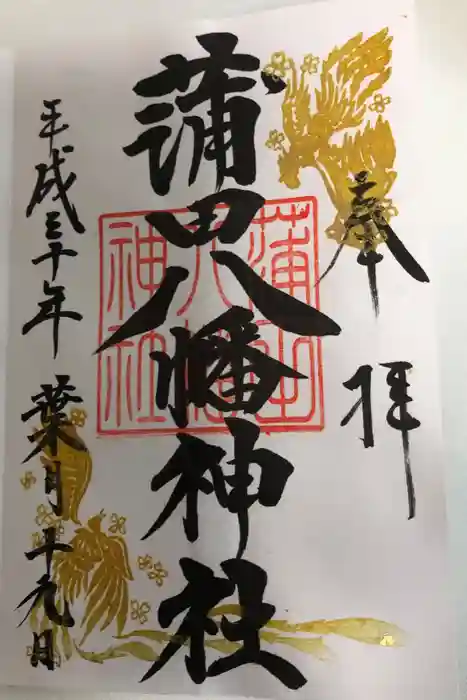 奉拝
蒲田八幡神社
平成三十年葉月十九日
蒲田
八幡
神社